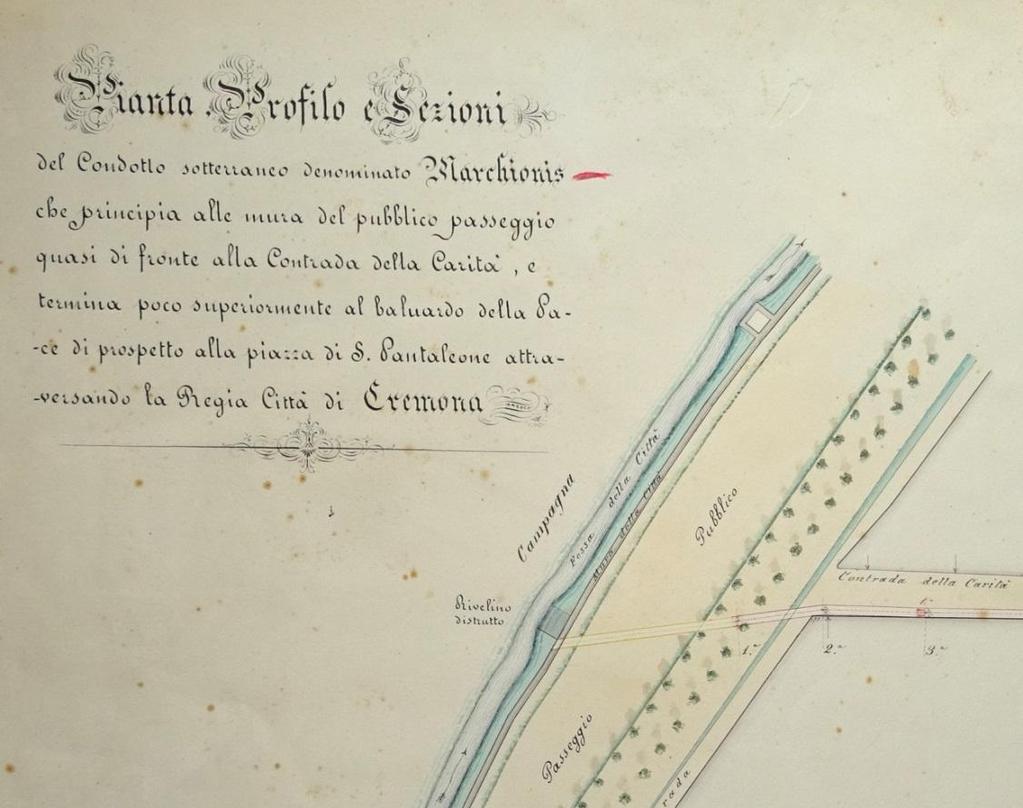 Pianta. Profilo e Sezioni
del Condotto sotterraneo denominato Marchionis
che principia alle mura del pubblico passeggio
quasi di fronte alla Contrada della Carità, e
termina poco superiormente al baluardo della Pa-
-ce di prospetto alla piazza di S. Pantaleone attra-
-versando la Regia Città di Cremona
Campagna
Fossa della Città
Mura della Città
Pubblico
Passeggio
Rivelino
distrutto
Contrada della Carità
1.°
2.°
3.°
rada